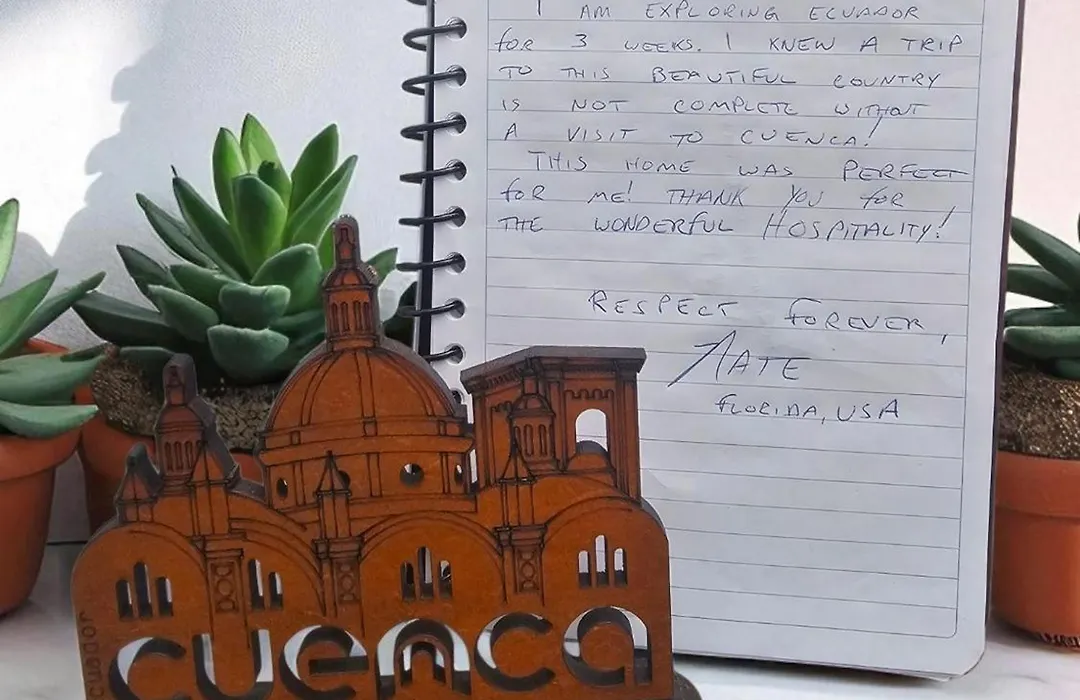 I AM EXPLORING ECUADOR
for 3 WEEKS. I KNEW A TRIP
TO THIS BEAUTIFUL COUNTRY
IS NOT COMPLETE WITHOUT
A VISIT TO CUENCA!
THIS HOME WAS PERFECT
for ME! THANK YOU for
THE WONDERFUL HOSPITALITY!
RESPECT FOREVER,
NATE
FLORIDA, USA
ecuador
cuenca